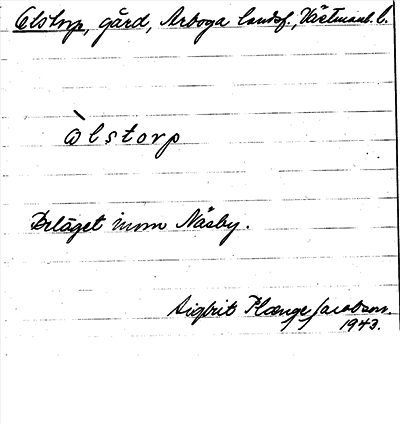 Olstorp, gård, Arboga landsf., Västmanl. l.
òlstorp
Beläget inom Näsby.
Sigbrit Plænge Jacobson.
1943.